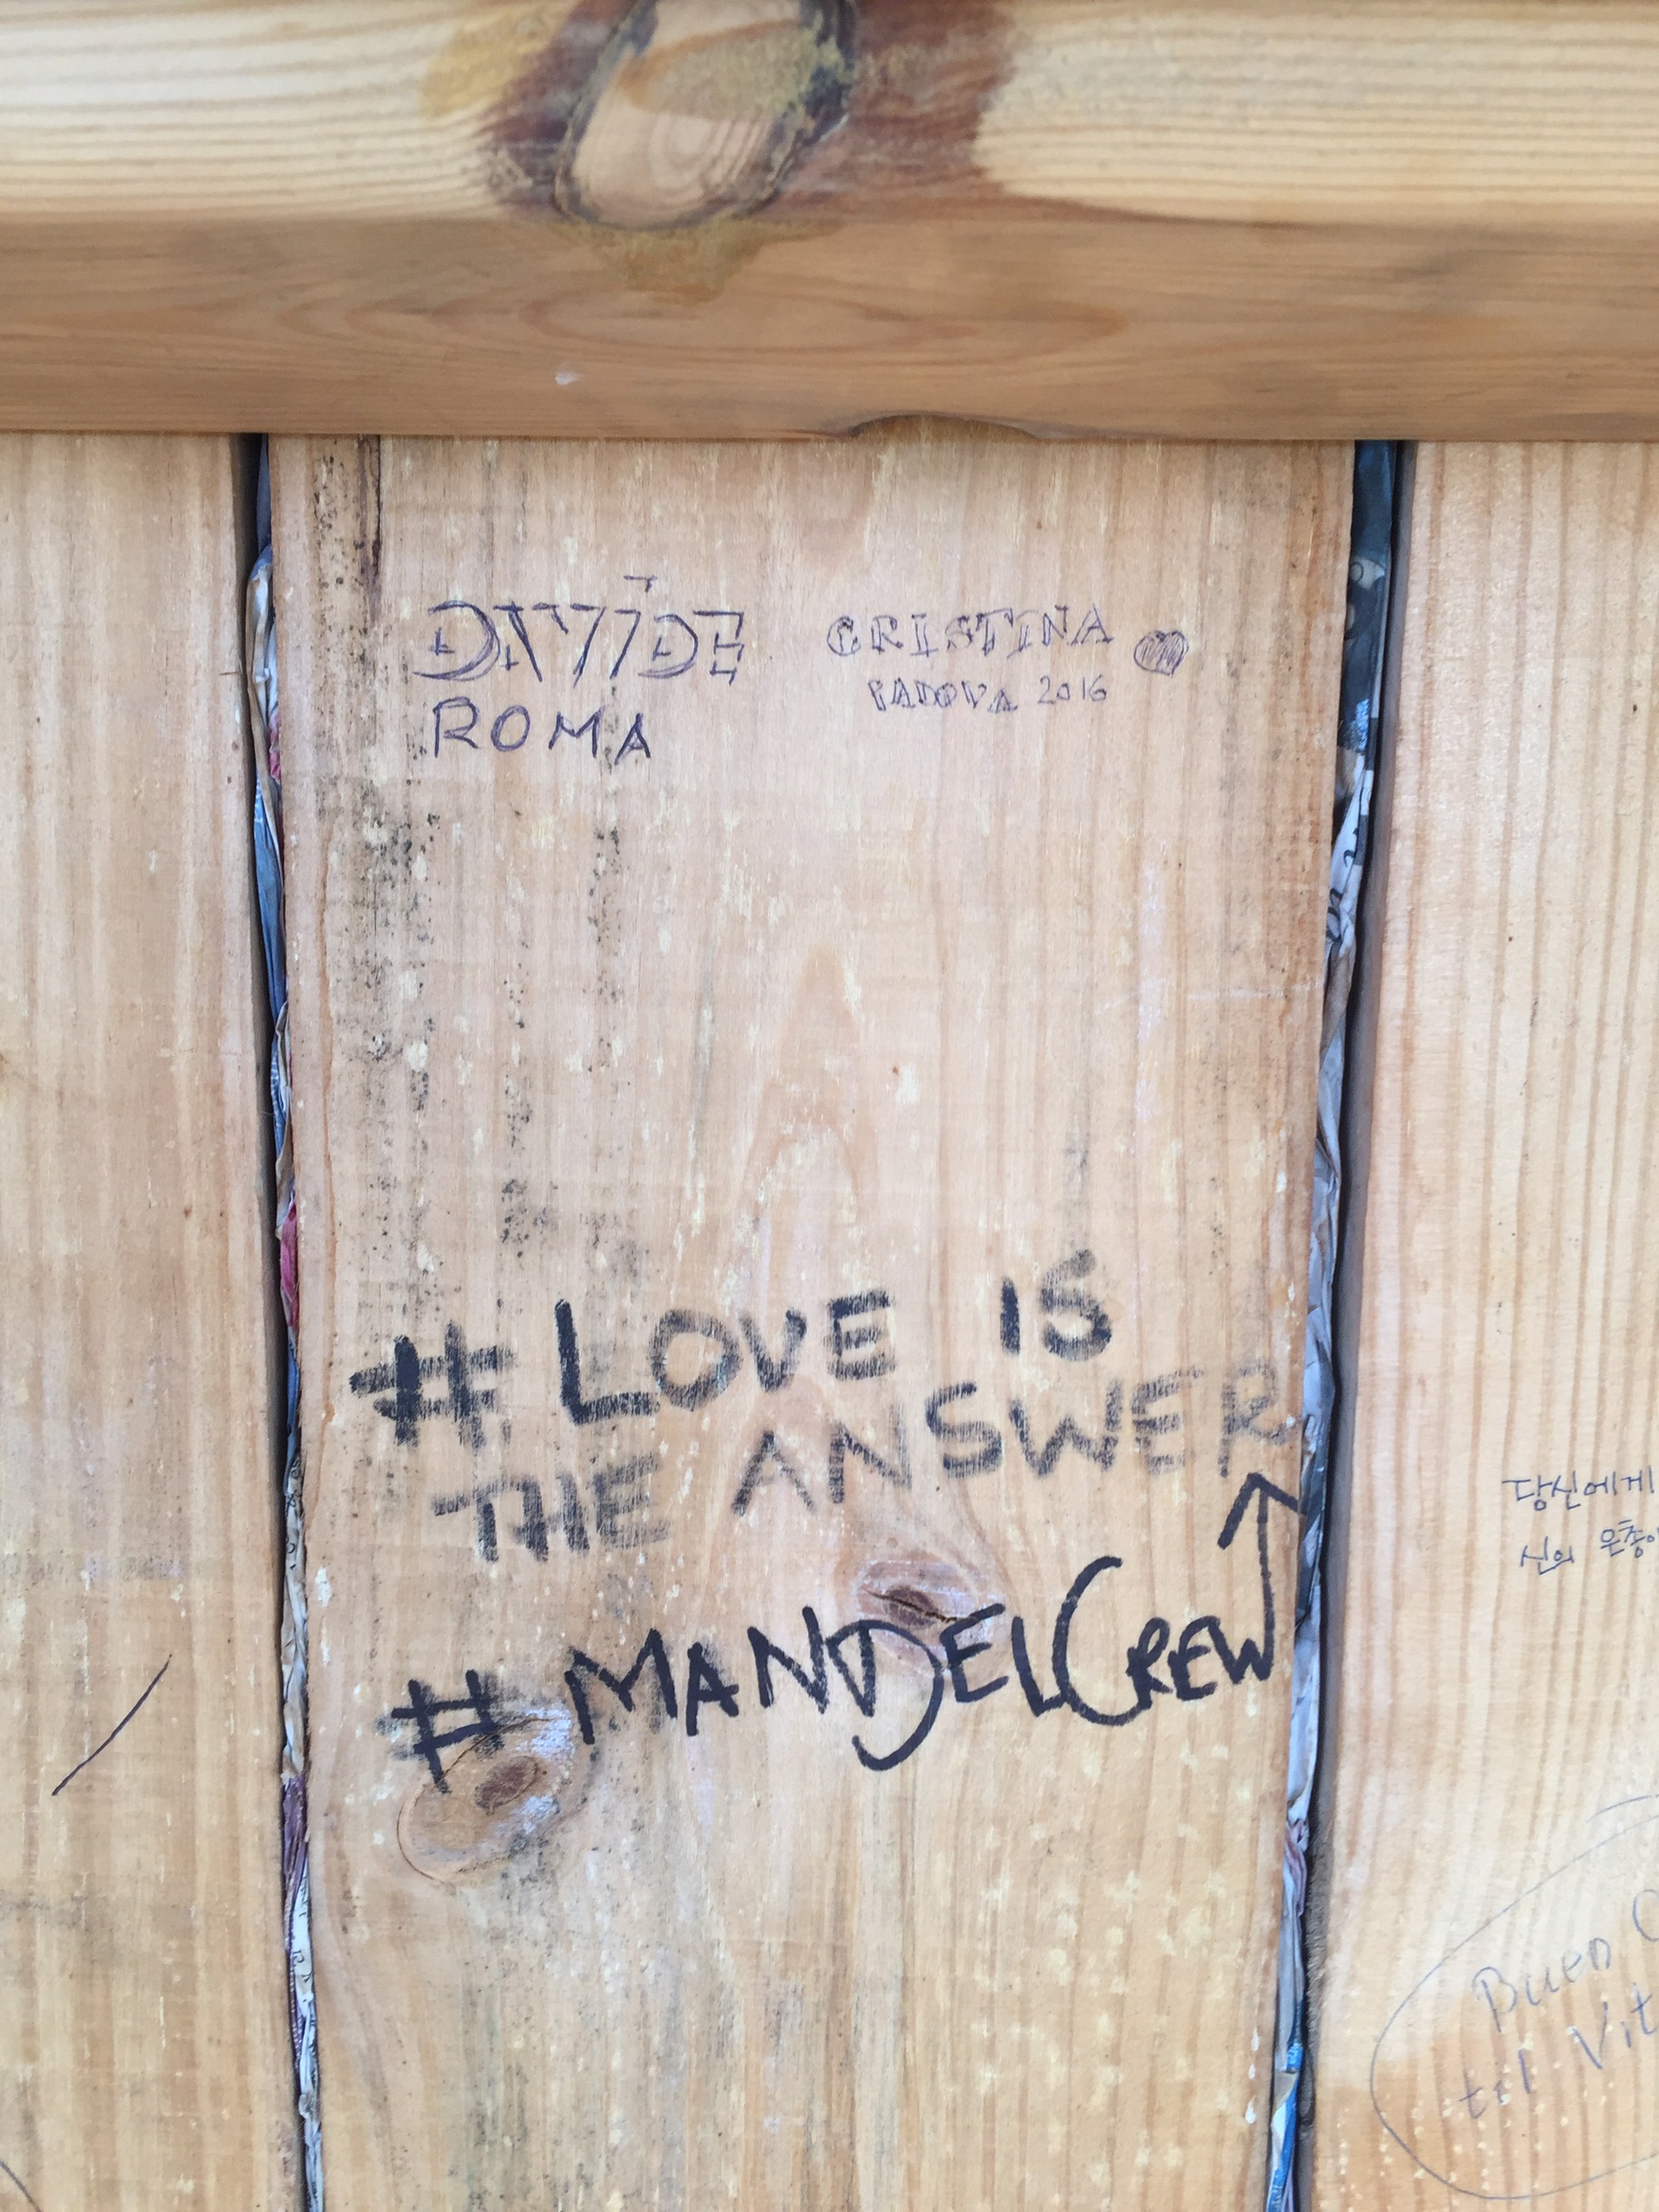 DAVIDE
ROMA
CRISTINA
PADOVA 2016
# LOVE IS
THE ANSWER
# MANDELCREW
당신에게
신의 은총이
Buen
til Vit